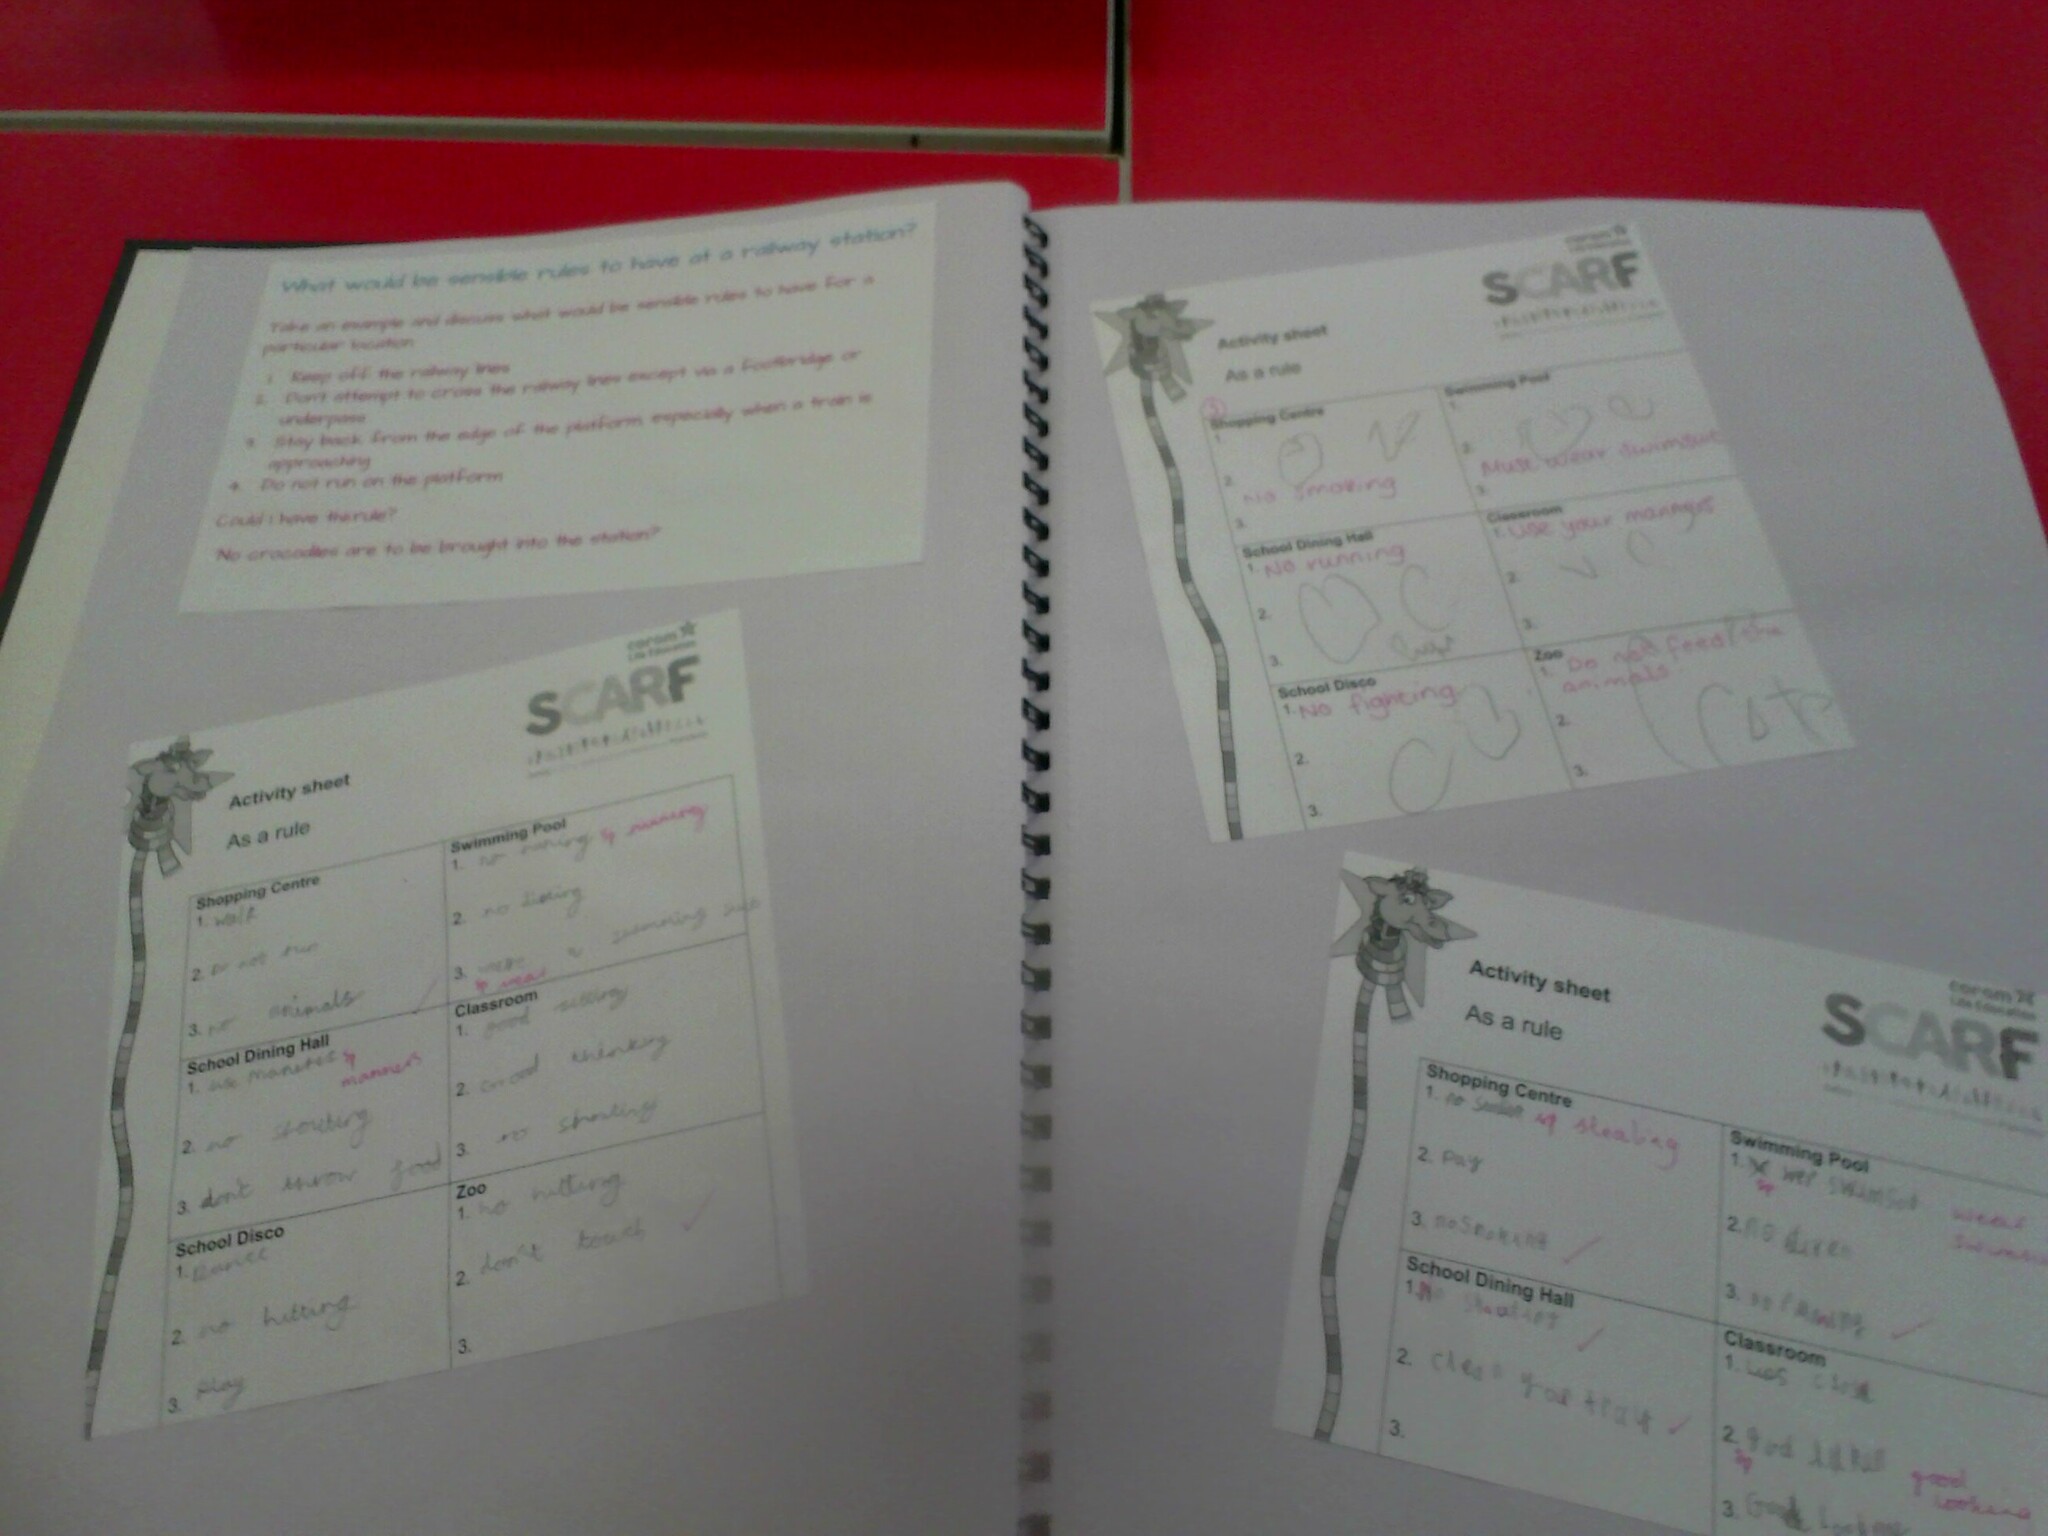 What would be sensible rules to have at a railway station?
Take an example and discuss what would be sensible rules to have for a
particular location
1. Keep off the railway lines
2. Don't attempt to cross the railway lines except via a footbridge or
underpass
3. Stay back from the edge of the platform especially when a train is
approaching
4. Do not run on the platform
Could I have this rule?
No crocodiles are to be brought into the station?
coram
Life Education
SCARF
Activity sheet
As a rule
Shopping Centre
1. walk
2. do not run
3. no animals
Swimming Pool
1. no sp running
2. no diving
3. a swimming
sp wear
School Dining Hall
1. use manetes sp
manners
2. no shouting
3. don't throw food
Classroom
1. good sitting
2. Good thinking
3. no shouting
School Disco
1. Dance
2. no hitting
3. play
Zoo
1. no hitting
2. don't touch
3.
coram
SCARF
Activity sheet
As a rule
Shopping Centre
1.
2.
No smoking
3.
Swimming Pool
1.
2.
Must wear swimsuit
3.
School Dining Hall
1. No running
2.
3.
Classroom
1. Use your manners
2.
3.
School Disco
1. No fighting
2.
3.
Zoo
1. Do not feed the
animals
2.
3.
coram
Life Education
SCARF
Activity sheet
As a rule
Shopping Centre
1. no sp stealing
2. pay
3. no smoking
Swimming Pool
1. wer swimsut wear
sp
2. no
3. no
School Dining Hall
1. No
2. clean your tray
3.
Classroom
1.
2. god good
sp looking
3. Good